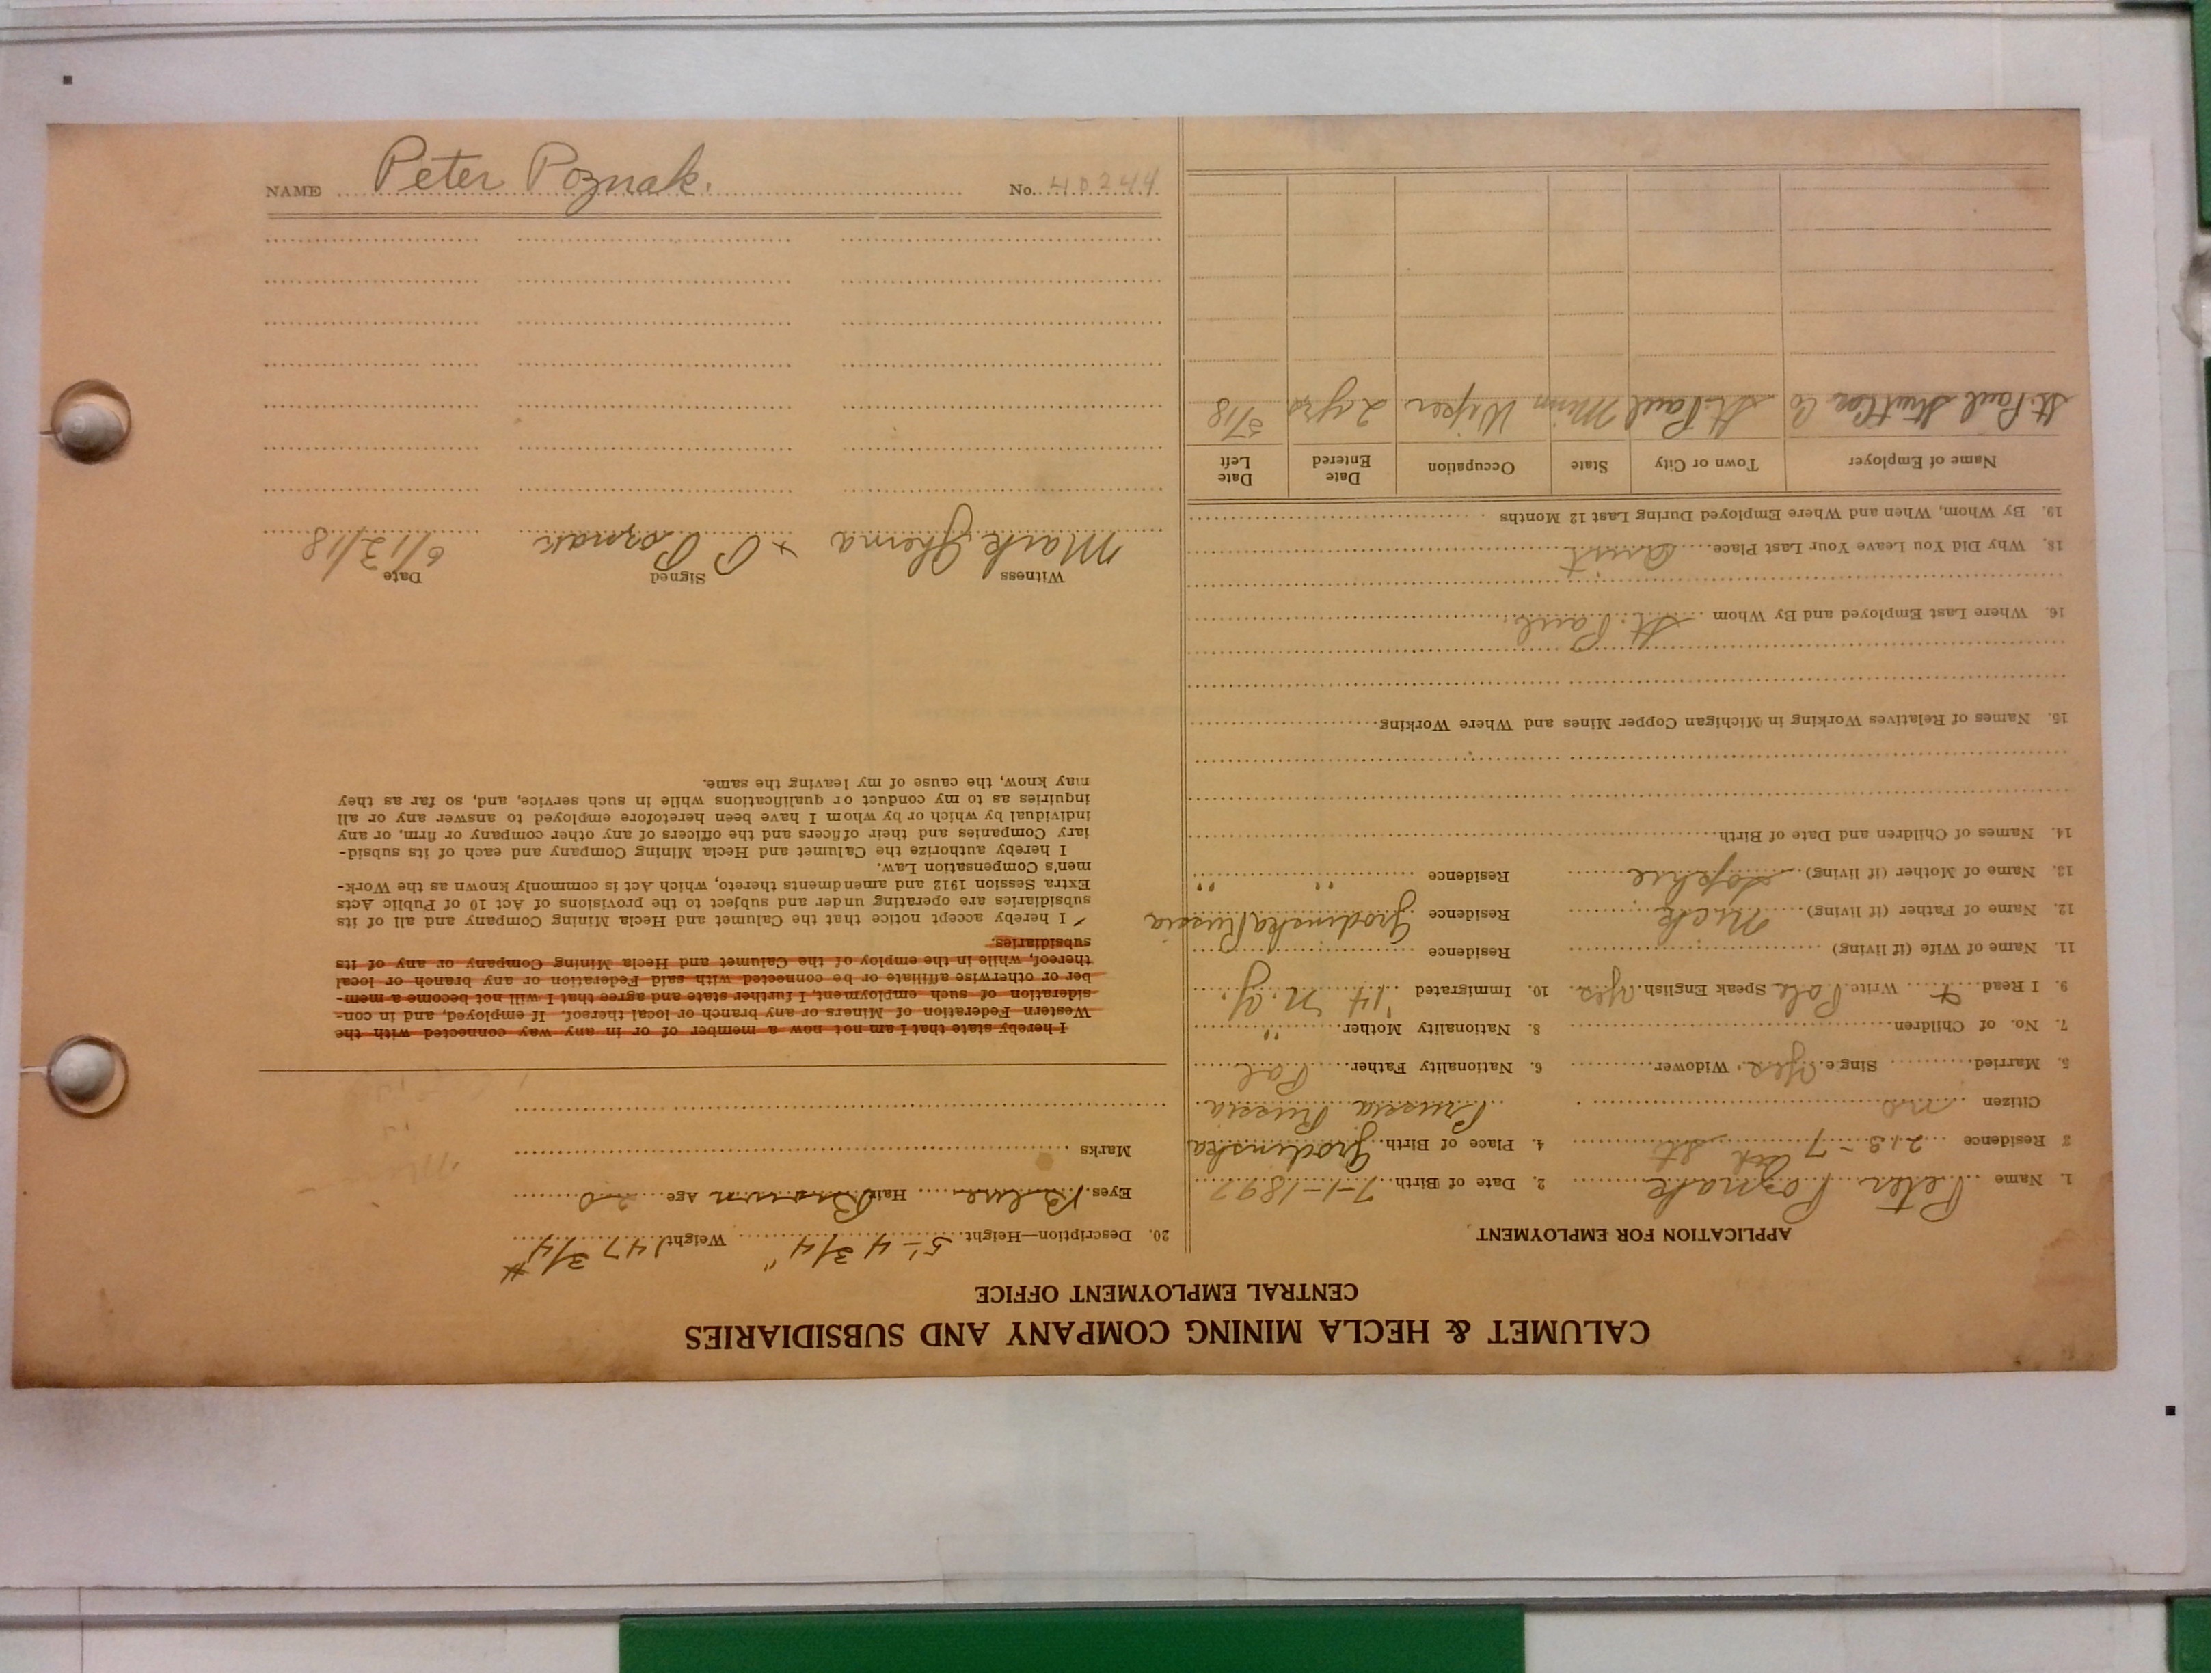 NAME Peter Poznak. No. 40244
CALUMET & HECLA MINING COMPANY AND SUBSIDIARIES
CENTRAL EMPLOYMENT OFFICE
APPLICATION FOR EMPLOYMENT
1. Name Peter Poznak 2. Date of Birth 7-1-1897
3 Residence 213-7 St 4. Place of Birth Grodinska
Citizen no Russia
5. Married Single yes. Widower 6. Nationality Father Pol
7. No. of Children 8. Nationality Mother "
9. I Read + Write Pole Speak English yes 10. Immigrated '14 N.Y.
11. Name of Wife (if living) Residence
12. Name of Father (if living) Nick Residence Grodinska Russia
13. Name of Mother (if living) Sophie Residence " "
14. Names of Children and Date of Birth
15. Names of Relatives Working in Michigan Copper Mines and Where Working
16. Where Last Employed and By Whom St. Paul
18. Why Did You Leave Your Last Place
19. By Whom, When and Where Employed During Last 12 Months
Name of Employer Town or City State Occupation Date Entered Date Left
St. Paul Co St. Paul Minn Wiper 2 yrs 5/18
20. Description—Height 5'-4 3/4" Weight 147 3/4 #
Eyes Blue Hair Brown Age 20
Marks
I hereby state that I am not now a member of or in any way connected with the
Western Federation of Miners or any branch or local thereof. If employed, and in con-
sideration of such employment, I further state and agree that I will not become a mem-
ber or otherwise affiliate or be connected with said Federation or any branch or local
thereof, while in the employ of the Calumet and Hecla Mining Company or any of its
subsidiaries.
I hereby accept notice that the Calumet and Hecla Mining Company and all of its
subsidiaries are operating under and subject to the provisions of Act 10 of Public Acts
Extra Session 1912 and amendments thereto, which Act is commonly known as the Work-
men's Compensation Law.
I hereby authorize the Calumet and Hecla Mining Company and each of its subsid-
iary Companies and their officers and the officers of any other company or firm, or any
individual by which or by whom I have been heretofore employed to answer any or all
inquiries as to my conduct or qualifications while in such service, and, so far as they
may know, the cause of my leaving the same.
Witness Signed Date
Mark Gherna x P Poznak 6/12/18